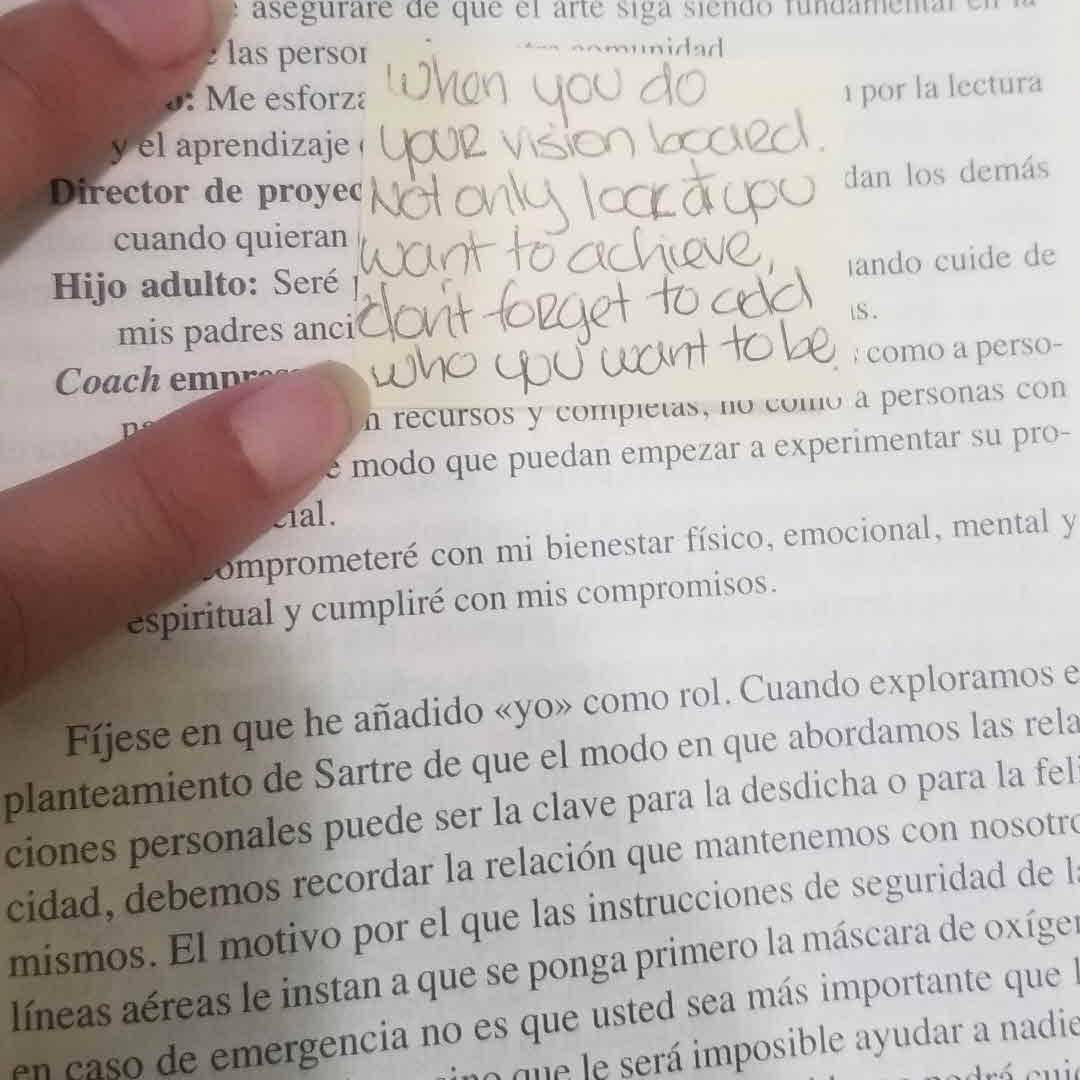 asegurare de que el arte siga siendo fundamental en la
las comunidad
When you do
Me por la lectura
your vision board.
y el aprendizaje
Not only look at you
Director de dan los demás
cuando quieran
want to achieve,
Hijo adulto: Seré cuide de
don't forget to add
mis padres
who you want to be.
Coach como a perso-
recursos y completas, no como a personas con
modo que puedan empezar a experimentar su pro-
cial.
comprometeré con mi bienestar físico, emocional, mental y
espiritual y cumpliré con mis compromisos.
Fíjese en que he añadido «yo» como rol. Cuando exploramos e
planteamiento de Sartre de que el modo en que abordamos las rela
ciones personales puede ser la clave para la desdicha o para la feli
cidad, debemos recordar la relación que mantenemos con nosotro
mismos. El motivo por el que las instrucciones de seguridad de la
líneas aéreas le instan a que se ponga primero la máscara de oxíge
en caso de emergencia no es que usted sea más importante que l
que le será imposible ayudar a nadie